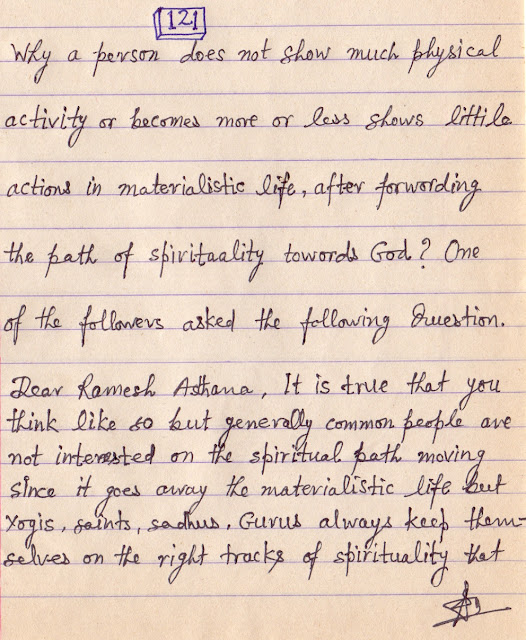 121
Why a person does not show much physical
activity or becomes more or less shows little
actions in materialistic life, after forwording
the path of spiritaality towords God? One
of the followers asked the following Question.
Dear Ramesh Asthana, It is true that you
think like so but generally common people are
not interested on the spiritual path moving
since it goes away the materialistic life but
Yogis, saints, sadhus, Gurus always keep them-
selves on the right tracks of spirituality that